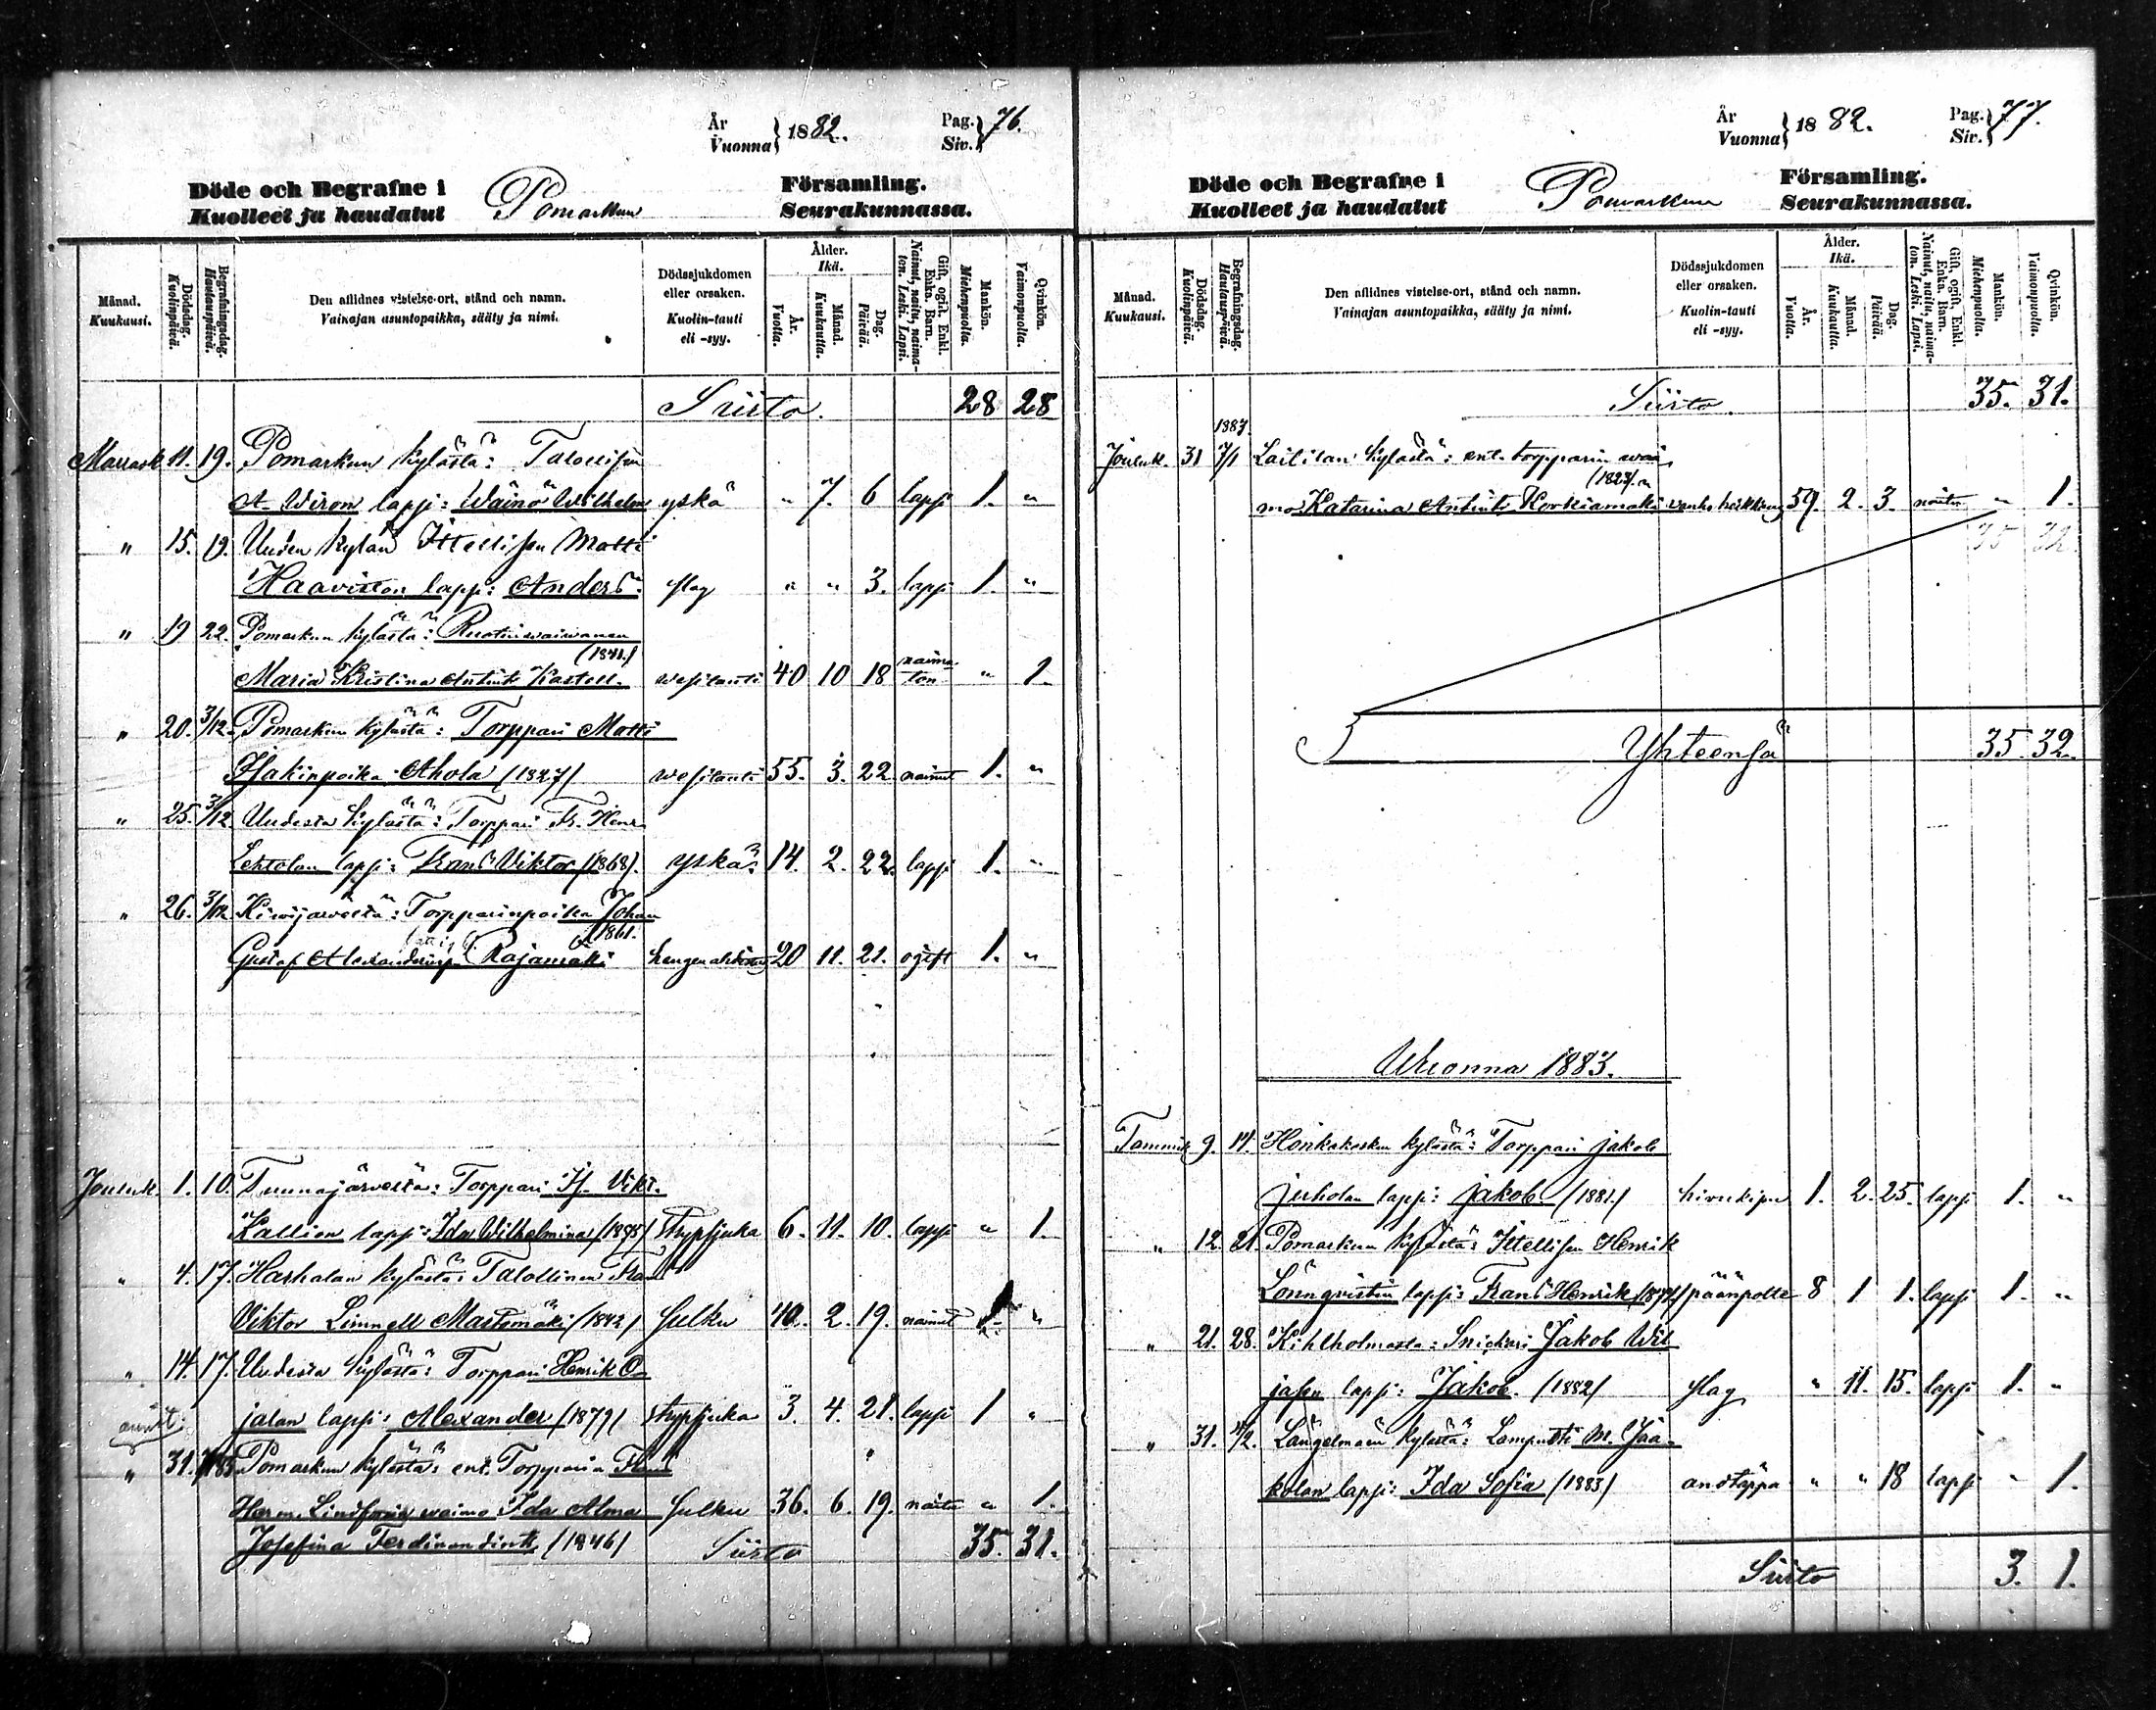 År
Vuonna } 1882.
Pag.
Siv. } 76.
Döde och Begrafne i
Kuolleet ja haudatut
Pomarkun
Församling.
Seurakunnassa.
Månad.
Kuukausi.
Dödsdag.
Kuolinpäivä.
Begrafningsdag.
Hautauspäivä.
Den aflidnes vistelse-ort, stånd och namn.
Vainajan asuntopaikka, sääty ja nimi.
Dödssjukdomen
eller orsaken.
Kuolin-tauti
eli -syy.
Ålder.
Ikä.
År.
Vuotta.
Månad.
Kuukautta.
Dag.
Päivää.
Gift, ogift. Enkl.
Enka. Barn.
Nainut, naitu, naima-
ton. Leski. Lapsi.
Mankön.
Miehenpuolta.
Qvinkön.
Vaimonpuolta.
Siirto. 28 28
Marrask 11. 19. Pomarkun kylästä: Talollisen
A. Wiron lapsi: Wäinö Wilhelm yskä " 7. 6 lapsi 1. "
" 15. 19. Uuden kylän Itsellisen Matti
Haaviston lapsi: Anders. slag " " 3. lapsi 1. "
" 19 22. Pomarkun kylästä: Ruotiwaiwanen
(1841.)
Maria Kristina Antint. Kastell. wesitauti 40 10 18 naima-
ton " 1.
" 20. 3/12. Pomarkun kylästä: Torppari Matti
Isakinpoika Ahola (1827) wesitauti 55. 3. 22. nainut 1. "
" 25. 3/12. Uudesta kylästä: Torppari Fr. Henr.
Lehtolan lapsi: Frans Viktor (1868). yskä. 14. 2. 22. lapsi 1. "
" 26. 3/12 Kiwijarvesta: Torpparinpoika Johan
1861.
Gustaf Alexanderinp. Rajamäki 20 11. 21. ogift 1. "
Jouluk. 1. 10. Tunnajärvestä: Torppari Is. Vikt.
Kallion lapsi: Ida Wilhelmina (1875) Strypsjuka 6. 11. 10. lapsi " 1.
" 4. 17. Harhalan kylästä: Talollinen Frans
Viktor Linnell Mastomäki (1842) Hulku 40. 2. 19. nainut 1. "
" 14. 17. Uudesta kylästä: Torppari Henrik O-
jalan lapsi: Alexander (1879) strypsjuka 3. 4. 21. lapsi 1 "
" 31. 7/1 83 Pomarkun kylästä: ent. Torpparin Frans
Herm. Lindforsin waimo Ida Alma Hulku 36. 6. 19. naitu " 1.
Josefina Ferdinandint. (1846) Siirto 35. 31.
År
Vuonna } 1882.
Pag.
Siv. } 77.
Döde och Begrafne i
Kuolleet ja haudatut
Pomarkun
Församling.
Seurakunnassa.
Månad.
Kuukausi.
Dödsdag.
Kuolinpäivä.
Begrafningsdag.
Hautauspäivä.
Den aflidnes vistelse-ort, stånd och namn.
Vainajan asuntopaikka, sääty ja nimi.
Dödssjukdomen
eller orsaken.
Kuolin-tauti
eli -syy.
Ålder.
Ikä.
År.
Vuotta.
Månad.
Kuukautta.
Dag.
Päivää.
Gift, ogift. Enkl.
Enka. Barn.
Nainut, naitu, naima-
ton. Leski. Lapsi.
Mankön.
Miehenpuolta.
Qvinkön.
Vaimonpuolta.
Siirto. 35. 31.
1883
Jouluk. 31 7/1 Laililan kylästä: ent. torpparin wai-
(1823).
mo Katarina Antint. Korkiamäki 59. 2. 3. naitu " 1.
35 32.
Yhteensä 35. 32.
Wuonna 1883.
Tammik 9. 14. Honkakosken kylästä: Torppari Jakob
Juholan lapsi: Jakob (1881.) 1. 2. 25. lapsi 1. "
" 12. 21. Pomarkun kylästä: Itsellisen Henrik
Lönnqvistin lapsi: Frans Henrik (1874) päänpolte 8 1 1. lapsi 1. "
" 21. 28. Kihlholmasta: Snickari Jakob Wil-
jasen lapsi: Jakob. (1882) slag " 11. 15. lapsi 1. "
" 31. 4/2. Längelmään kylästä: Lampuoti M. Jaa-
kolan lapsi: Ida Sofia (1883) andtäppa " " 18 lapsi " 1.
Siirto 3. 1.